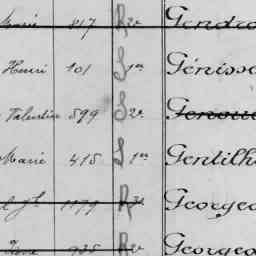 Marie 817 R 2e Gendro
Henri 101 S 1er Génisso
Valentin 599 S 2e Genou
Marie 415 S 1er Gentilh
1199 R 2e Georges
935 R 2e Georges